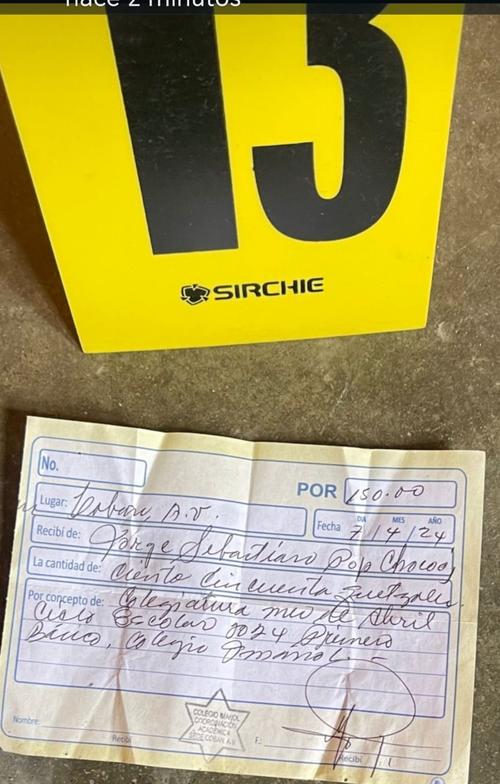 hace 2 minutos
13
SIRCHIE
No.
POR 150.00
Lugar: Coban, A.V.
Fecha DIA MES AÑO
7/4/24
Recibí de: Jorge Sebastian Pop
La cantidad de: Ciento Cincuenta Quetzales.
Por concepto de: Colegiatura mes de Abril
Ciclo Escolar 2024 Primero
Básico, Colegio
COLEGIO
COORDINACIÓN
ACADÉMICA
COBAN A.V.
Nombre:
Recibí
F.:
Recibí